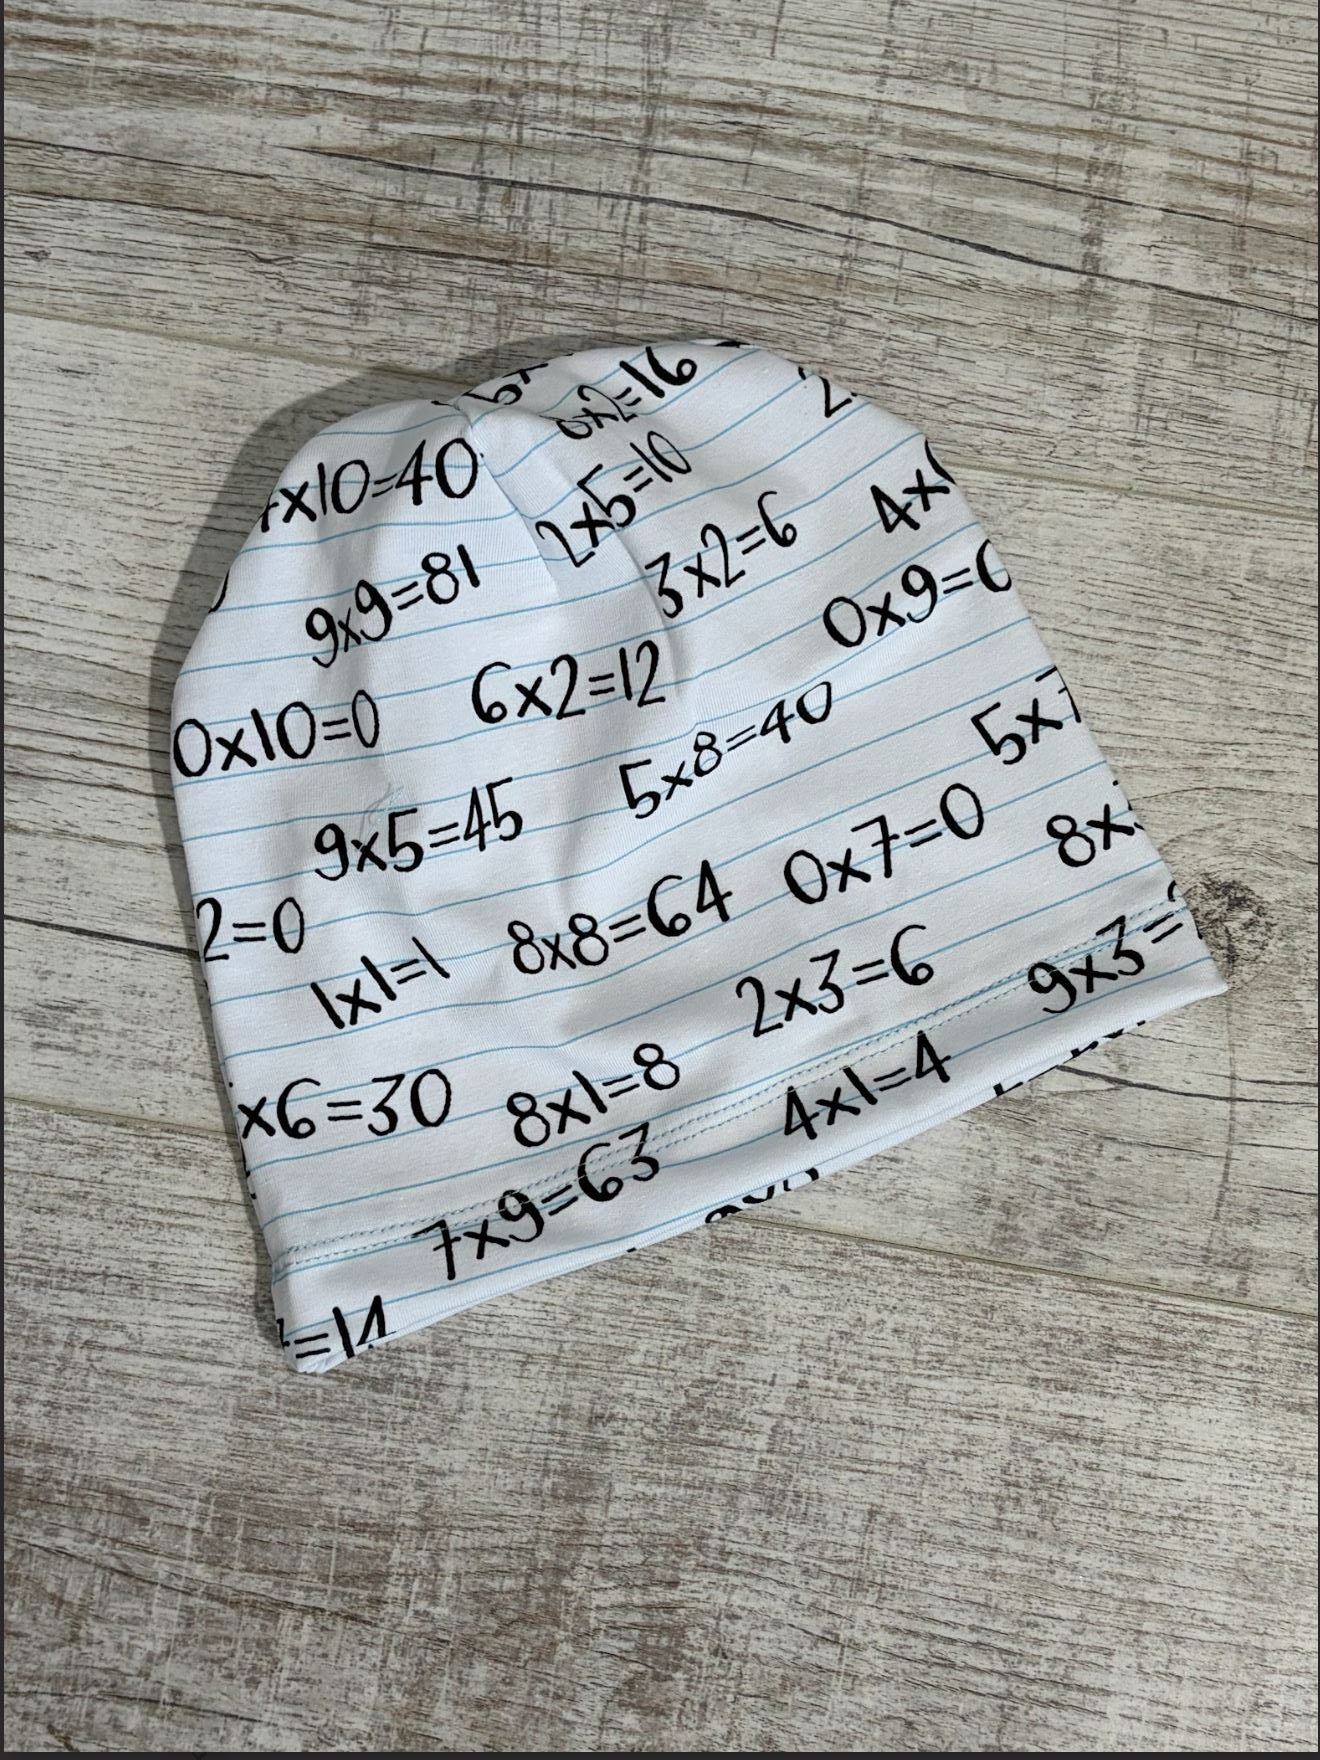 x10=40
x2=16
2x5=10
3x2=6
4x
9x9=81
0x9=
6x2=12
0x10=0
5x8=40
5x
9x5=45
0x7=0
8x
2=0
8x8=64
1x1=1
2x3=6
9x3=
x6=30
8x1=8
4x1=4
7x9=63
=14